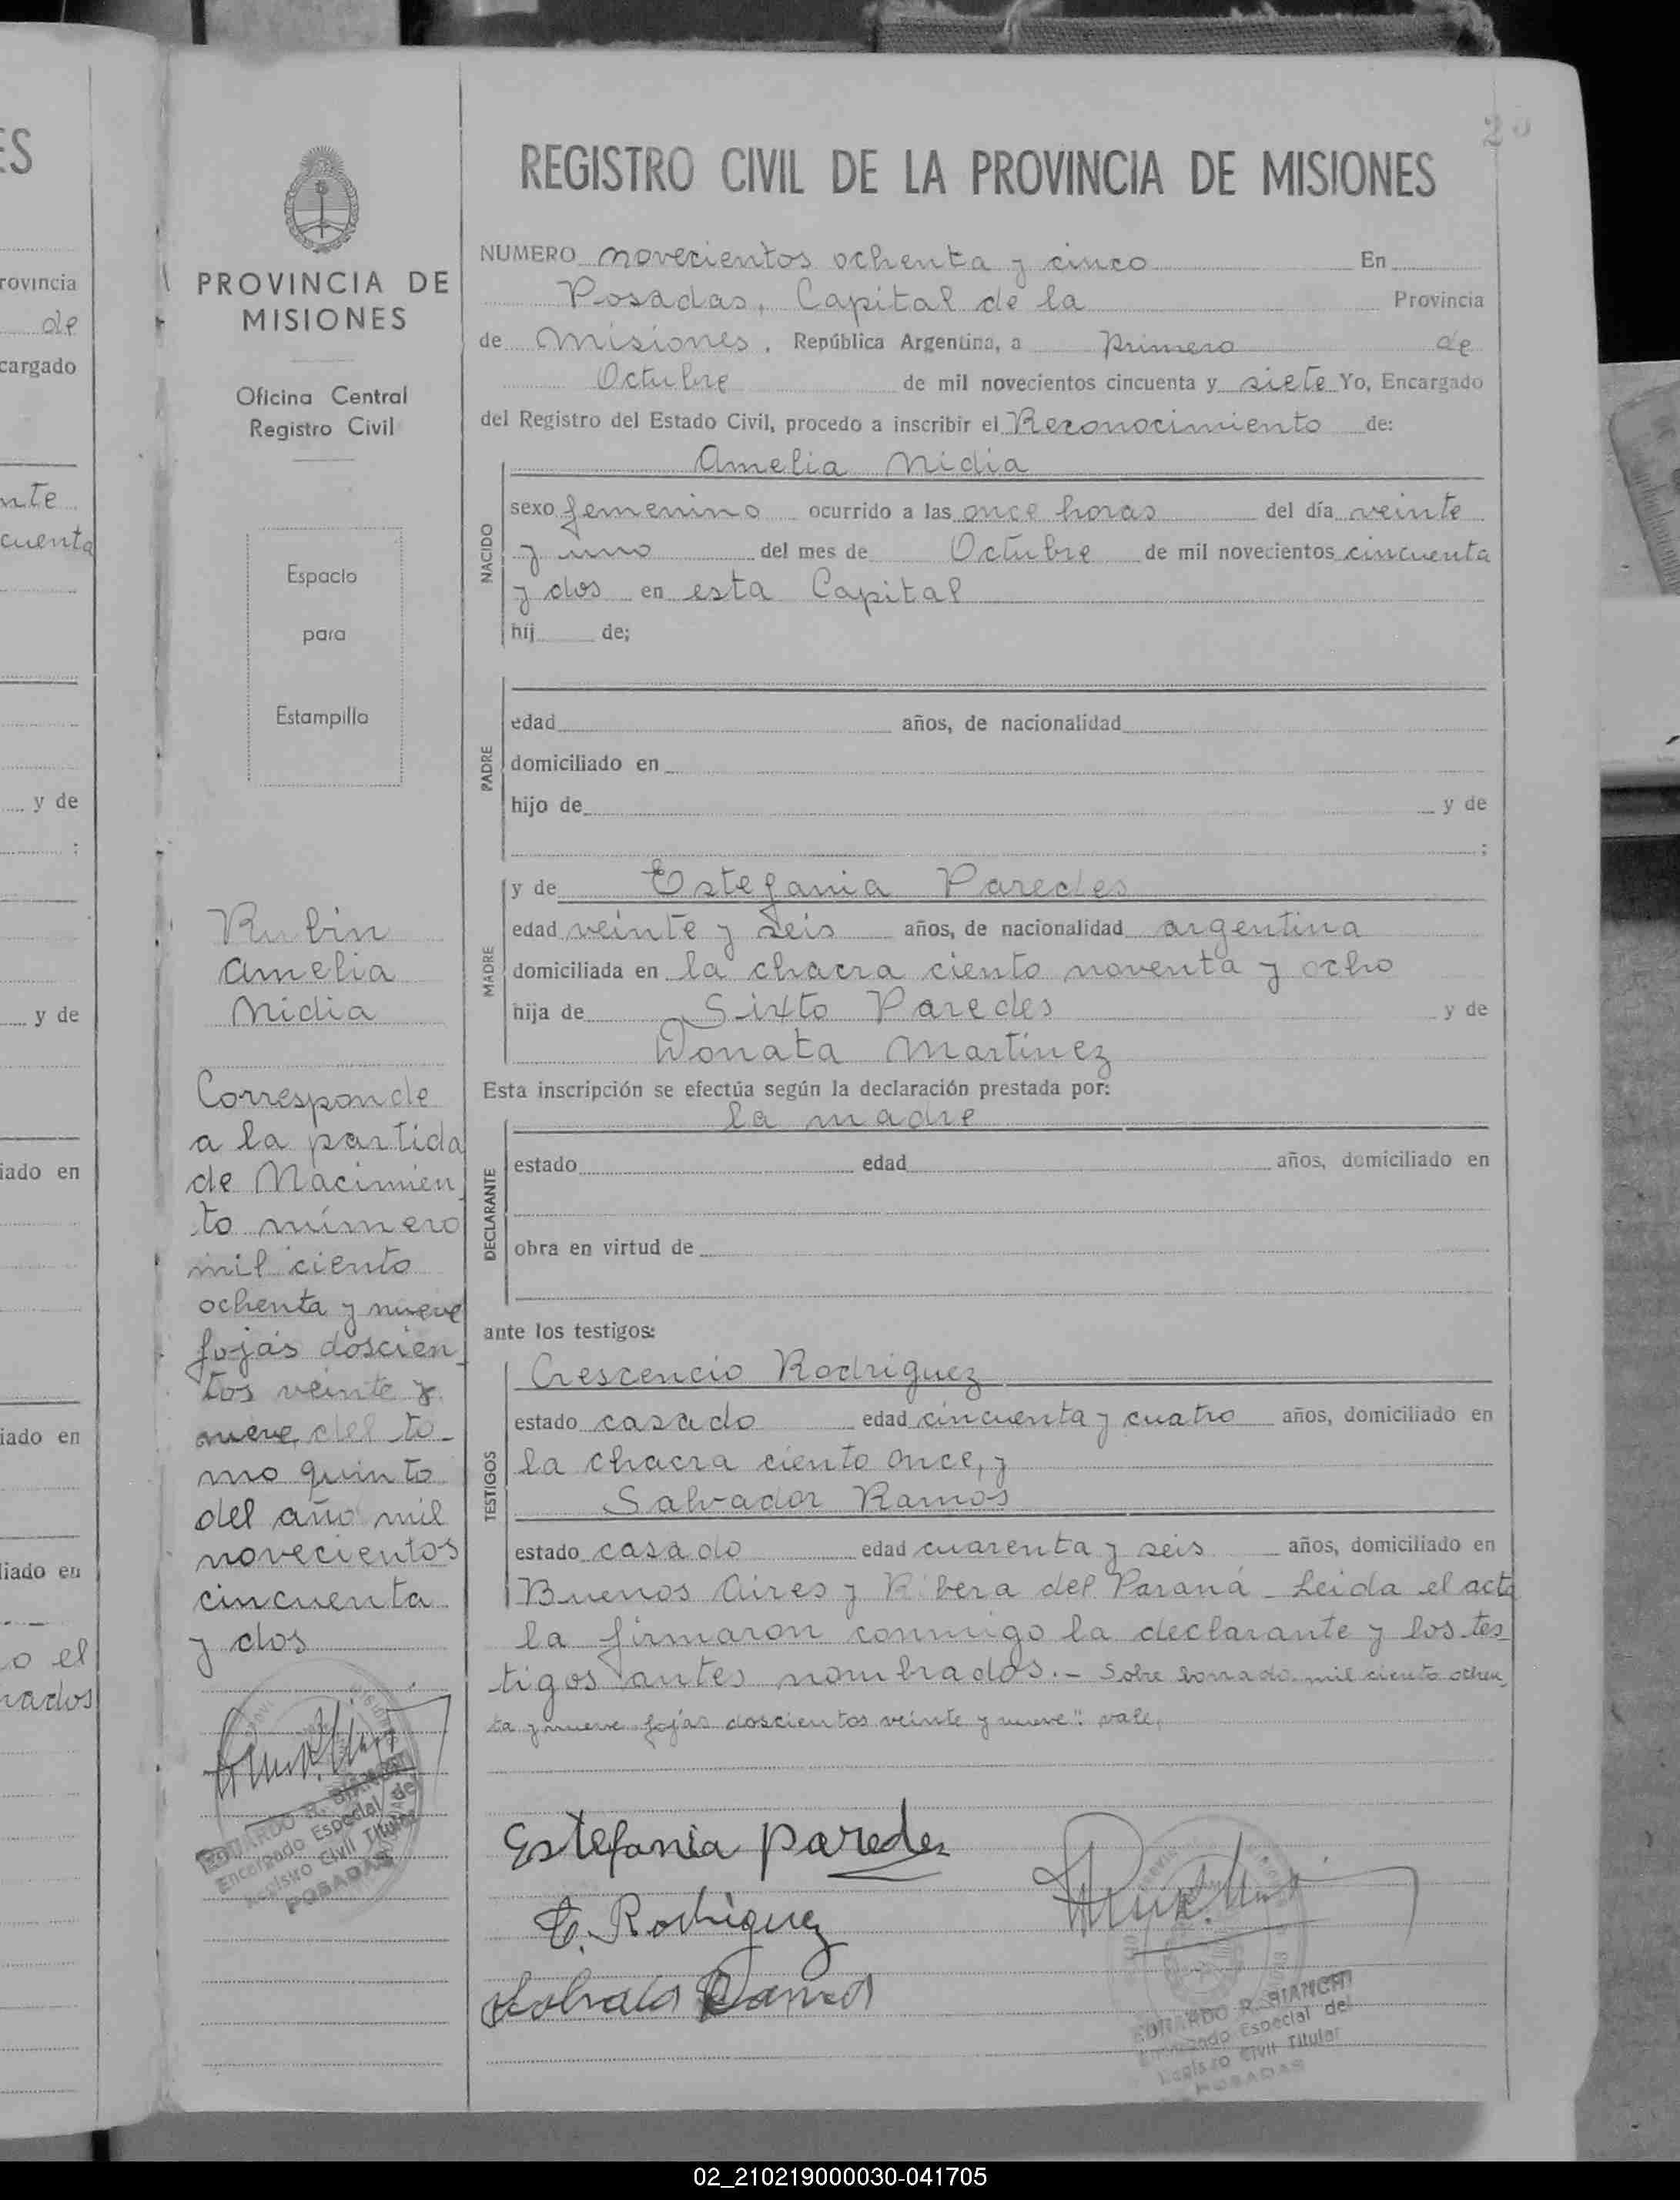 ES
rovincia
de
cargado
nte
cuenta
y de
;
y de
iado en
iado en
liado en
o el
rados
PROVINCIA DE
MISIONES
Oficina Central
Registro Civil
Espacio
para
Estampilla
Rubin
Amelia
Nidia
Corresponde
a la partida
de Nacimien
to número
mil ciento
ochenta y nueve
fojas doscien_
tos veinte y
nueve del to_
mo quinto
del año mil
novecientos
cincuenta
y dos
EDUARDO R. BIANCHI
Encargado Especial del
Registro Civil Titular
POSADAS
REGISTRO CIVIL DE LA PROVINCIA DE MISIONES
NUMERO novecientos ochenta y cinco En
Posadas, Capital de la Provincia
de Misiones, República Argentina, a primero de
Octubre de mil novecientos cincuenta y siete Yo, Encargado
del Registro del Estado Civil, procedo a inscribir el Reconocimiento de:
Amelia Nidia
NACIDO
sexo femenino ocurrido a las once horas del día veinte
y uno del mes de Octubre de mil novecientos cincuenta
y dos en esta Capital
hij de;
PADRE
edad años, de nacionalidad
domiciliado en
hijo de y de
;
MADRE
y de Estefania Paredes
edad veinte y seis años, de nacionalidad argentina
domiciliada en la chacra ciento noventa y ocho
hija de Sixto Paredes y de
Donata Martinez
Esta inscripción se efectúa según la declaración prestada por:
la madre
DECLARANTE
estado edad años, domiciliado en
obra en virtud de
ante los testigos:
TESTIGOS
Crescencio Rodriguez
estado casado edad cincuenta y cuatro años, domiciliado en
la chacra ciento once, y
Salvador Ramos
estado casado edad cuarenta y seis años, domiciliado en
Buenos Aires y Ribera del Paraná_ Leida el acta
la firmaron conmigo la declarante y los tes_
tigos antes nombrados.- Sobre borrado. mil ciento ochen_
ta y nueve fojas doscientos veinte y nueve": vale.
Estefania paredes
C. Rodriguez
Salvador Ramos
EDUARDO R. BIANCHI
Encargado Especial del
Registro Civil Titular
POSADAS
02_210219000030-041705